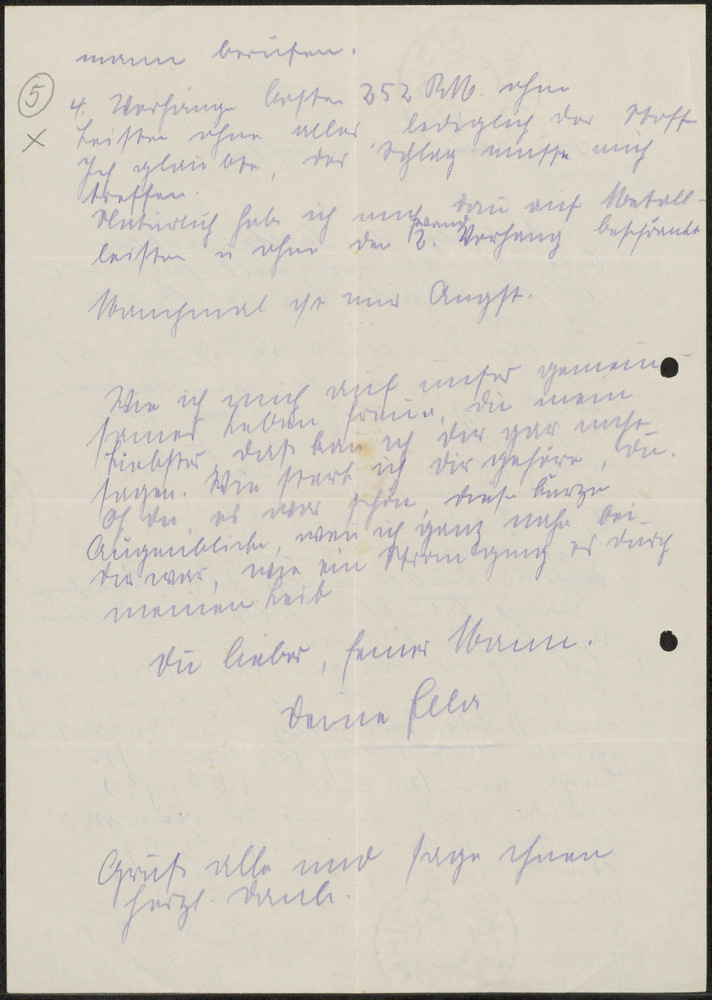 mann berufen.
5
4. Vorhänge kosten 352 RM. ohne
Leisten ohne alles lediglich der Stoff
Ich glaubte, der Schlag müsse mich
treffen.
Natürlich habe ich mich dan auf Metall-
leisten u ohne den 2. Vorhang beschränkt
Manchmal ist mir Angst.
Wie ich mich auf unser gemein-
sames Leben freue, du mein
Liebster, daß kan ich dir gar nicht
sagen. Wie stark ich dir gehöre, du.
Oh du, es war schön, diese kurze
Augenblicke, wen ich ganz nahe bei
dir war, wie ein Strom ging es durch
meinen Leib
Du lieber, feiner Mann.
Deine Ella
Grüß alle und sage ihnen
herzl. Dank.